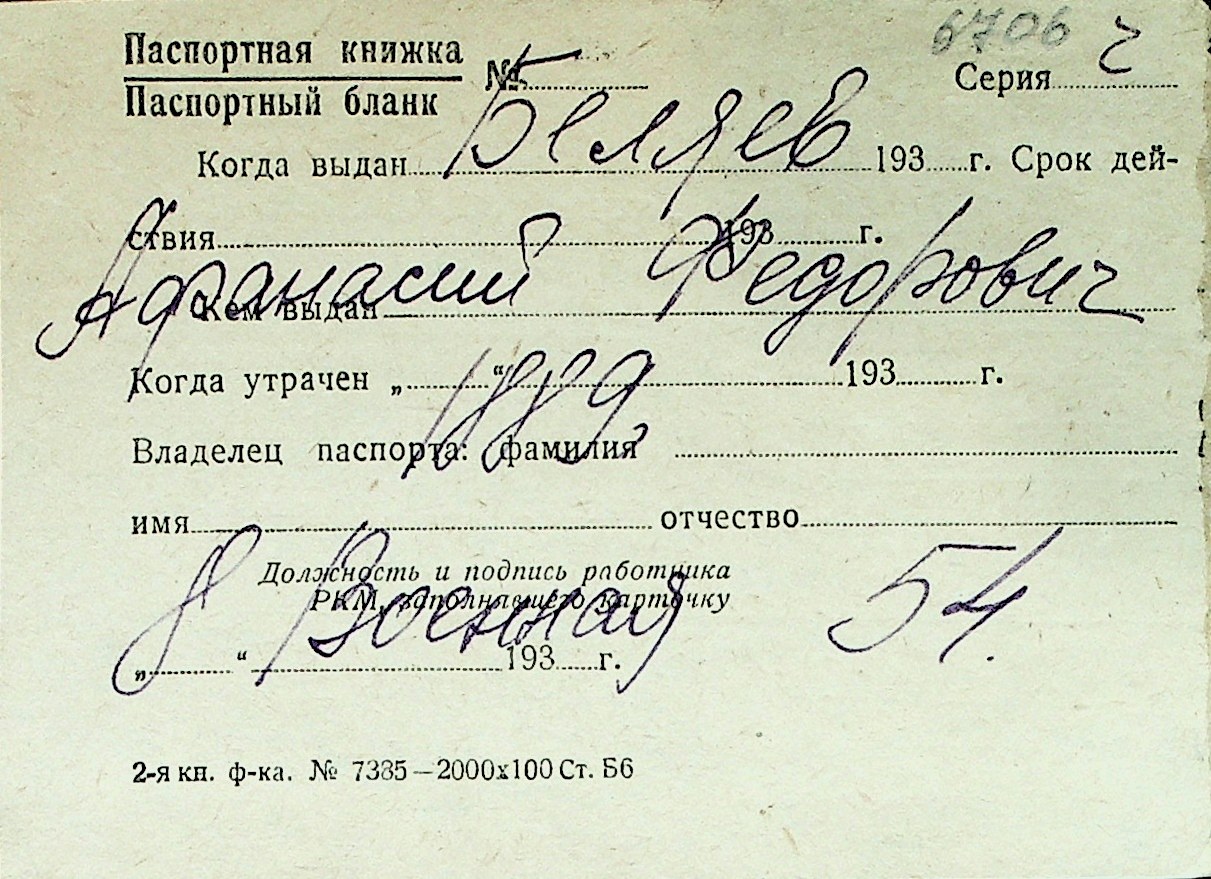 6706 ч
Паспортная книжка
Паспортный бланк № Серия
Беляев
Когда выдан 193 г. Срок дей-
ствия 193 г.
Афанасий Федорович
Кем выдан
Когда утрачен „ “ 193 г.
1889,
Владелец паспорта: фамилия
имя отчество
Должность и подпись работника
РКМ, заполнявшего карточку
8 Военная 54.
„ “ 193 г.
2-я кн. ф-ка. № 7385—2000х100 Ст. Б6